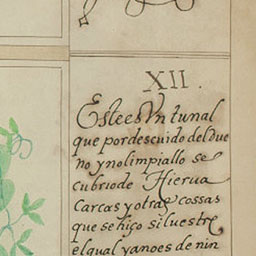 XII.
Este es Vn tunal
que por descuido del due
no y no limpiallo se
cubrio de Hierua
Carcas y otras cossas
que se hiço siluestre
el qual ya no es de nin